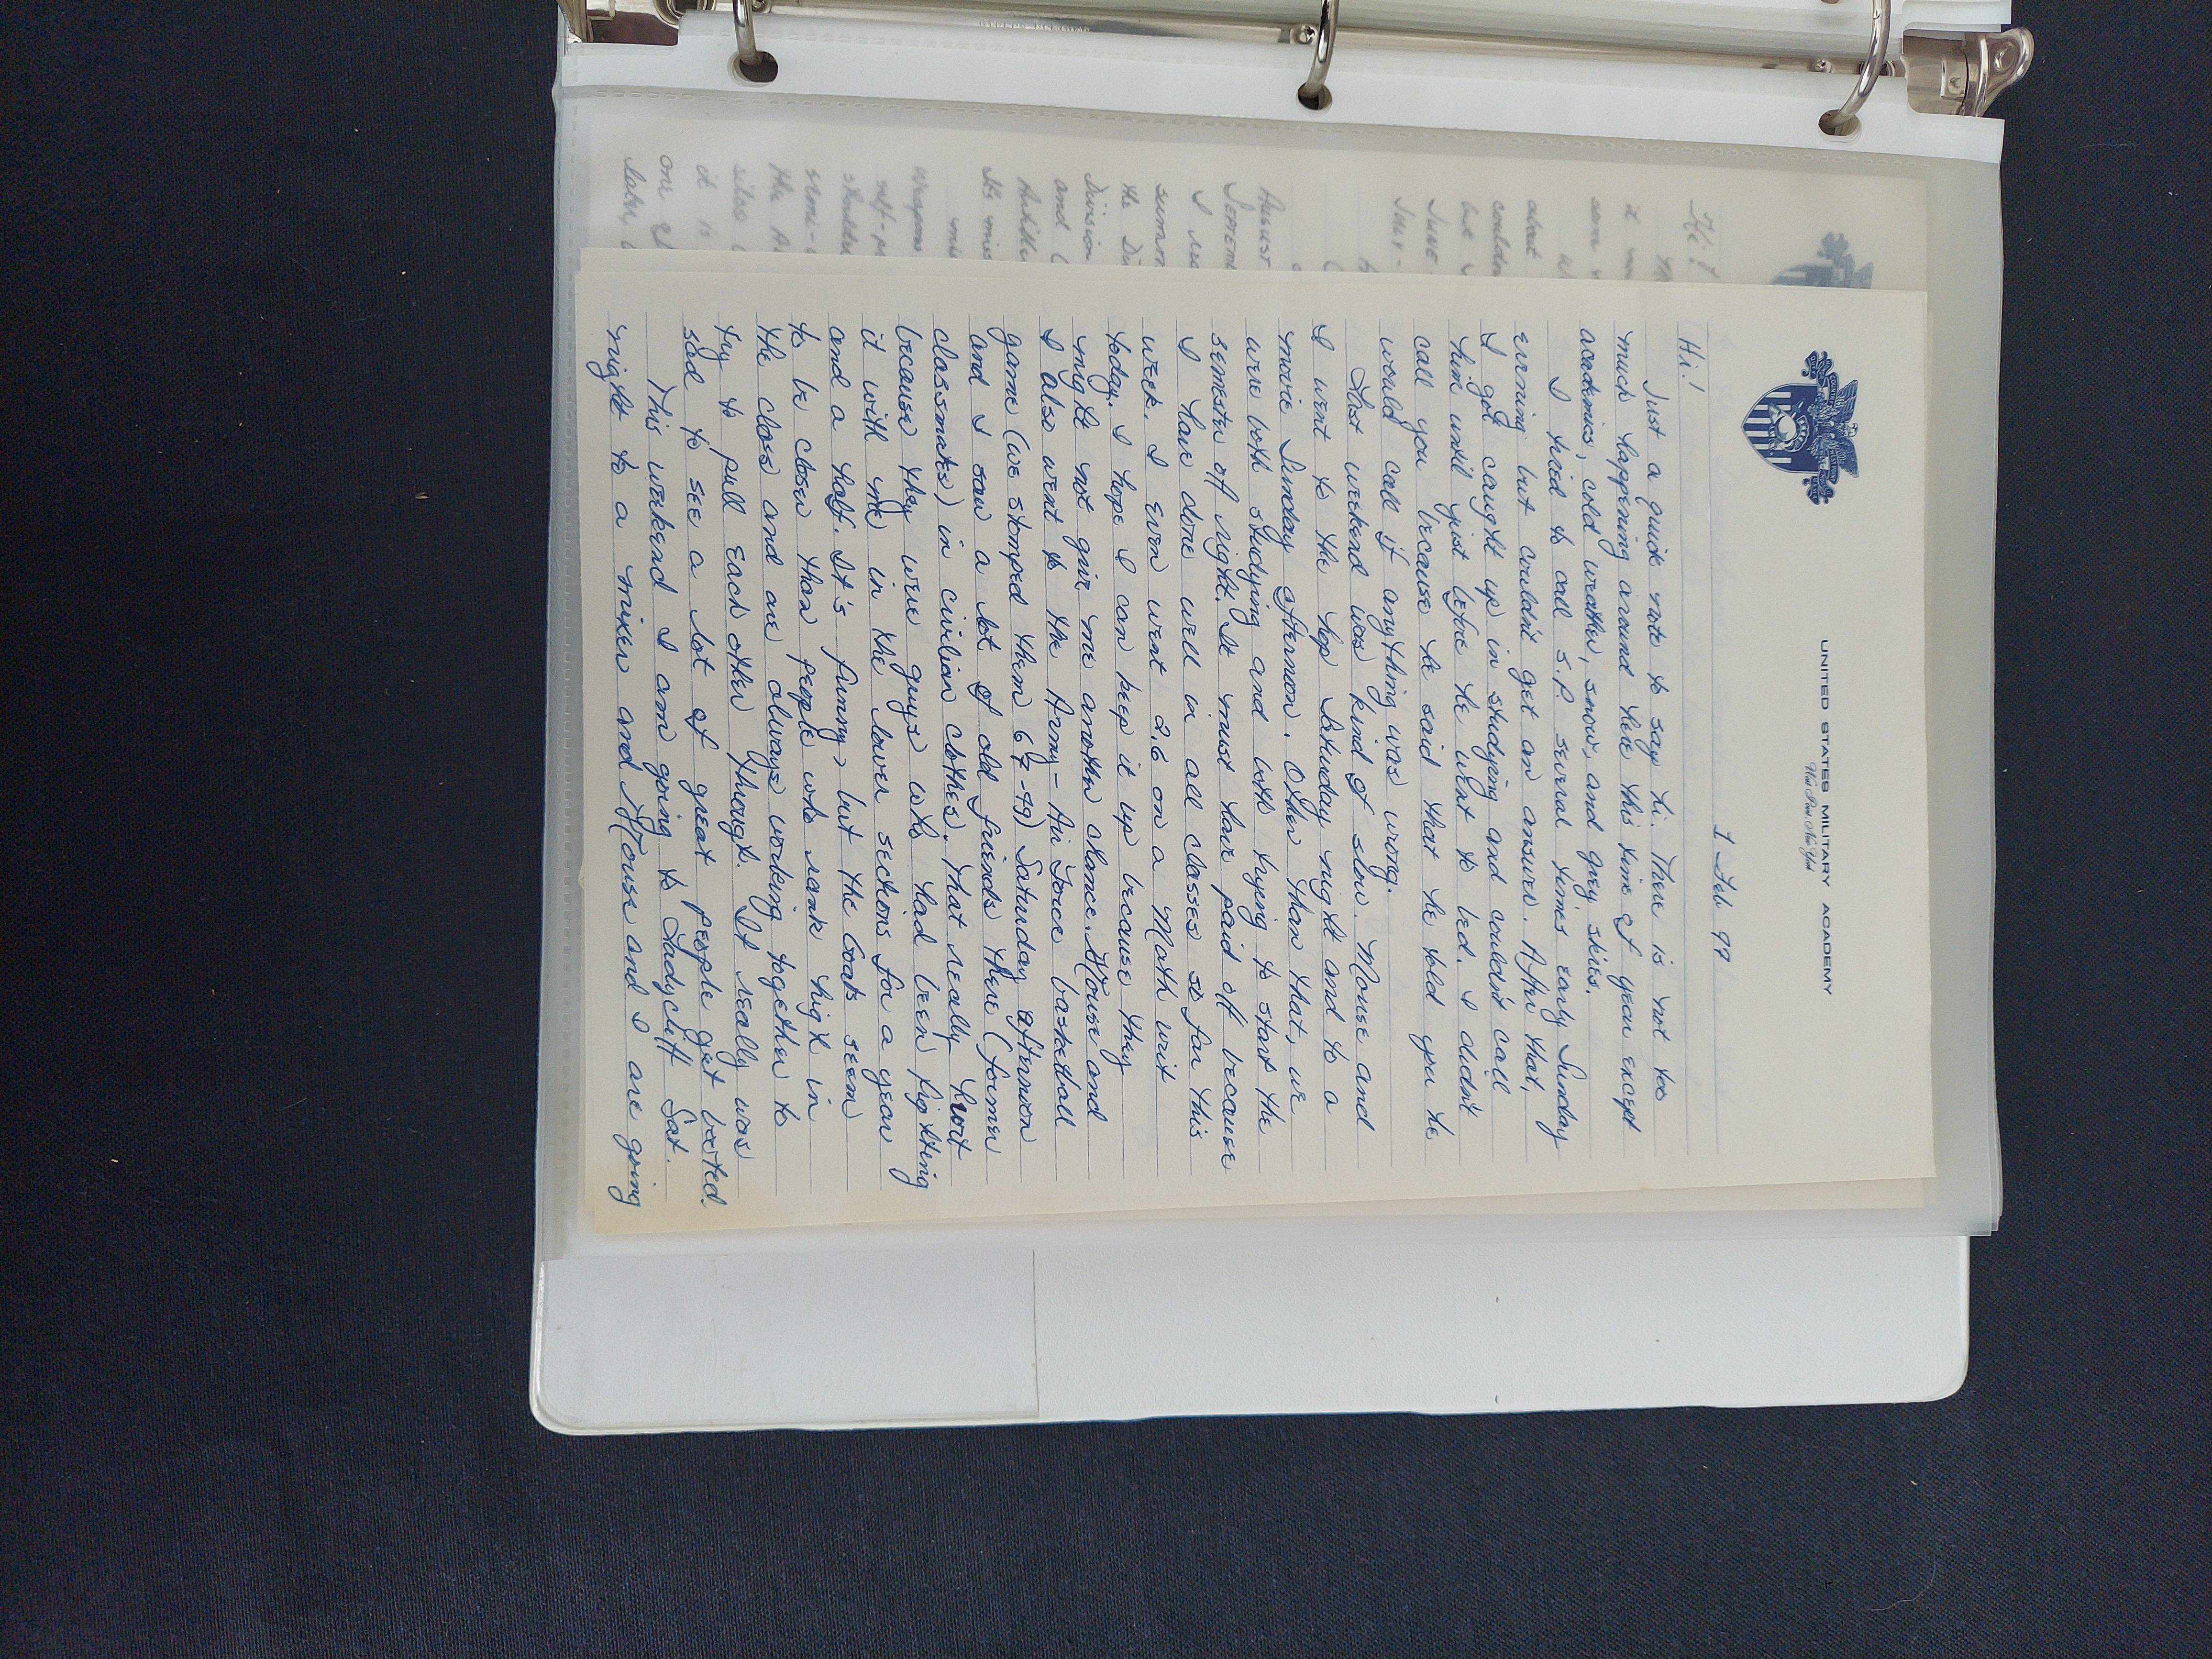 UNITED STATES MILITARY ACADEMY
West Point, New York
1 Feb 79
Hi!
Just a quick note to say hi. There is not too
much happening around here this time of year except
academics, cold weather, snow, and grey skies.
I tried to call S.P. several times early Sunday
evening but couldn't get an answer. After that,
I got caught up in studying and couldn't call
him until just before he went to bed. I didn't
call you because he said that he told you he
would call if anything was wrong.
Last weekend was kind of slow. Mouse and
I went to the hop Saturday night and to a
movie Sunday afternoon. Other than that, we
were both studying and both trying to start the
semester off right. It must have paid off because
I have done well in all classes so far this
week. I even went 2.6 on a Math writ
today. I hope I can keep it up because they
might not give me another chance. Mouse and
I also went to the Army-Air Force basketball
game (we stomped them 67-49) Saturday afternoon
and I saw a lot of old friends there (former
classmates) in civilian clothes. That really hurt
because they were guys who had been fighting
it with me in the lower sections for a year
and a half. It's funny, but the Goats seem
to be closer than people who rank high in
the class and are always working together to
try to pull each other through. It really was
sad to see a lot of great people get booted.
This weekend I am going to Ladycliff Sat.
night to a mixer and Mouse and I are going
Hi!
it
about
June
July -
August
I
summ
the Di
Division
and
Weapons
self-p
the
it is
one
later,